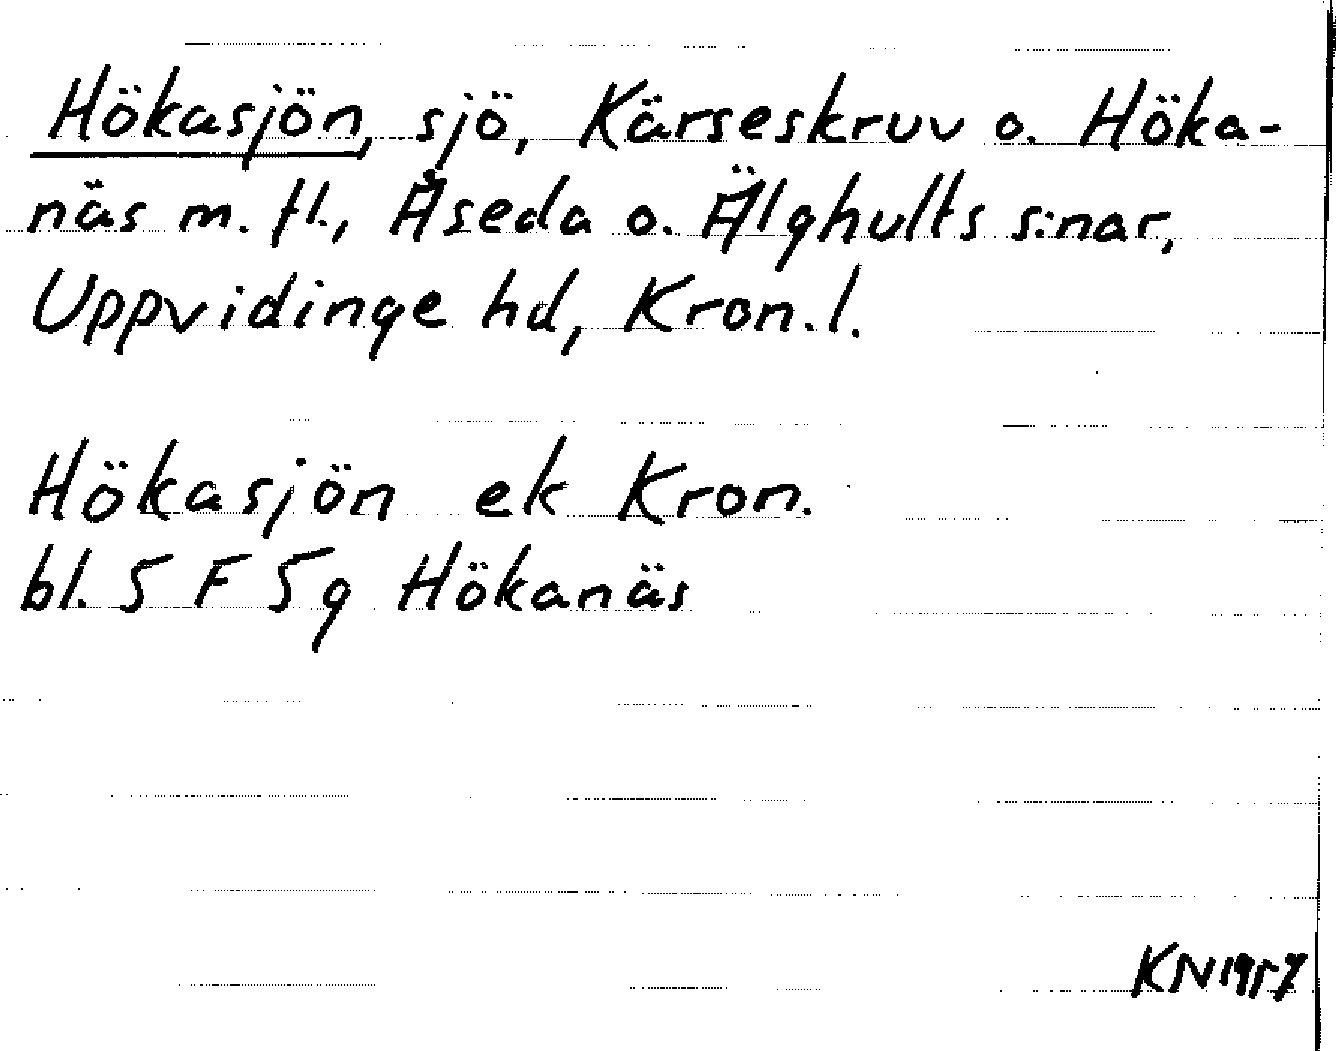 Hökasjön, sjö, Kärseskruv o. Höka-
näs m. fl., Åseda o. Älghults s:nar,
Uppvidinge hd, Kron. l.
Hökasjön ek Kron.
bl. 5 F 5g Hökanäs
KN 1957